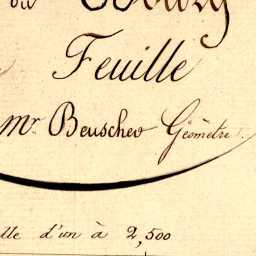 du Bourg
Feuille
mr Beuscher Géomètre.
lle d'un à 2,500